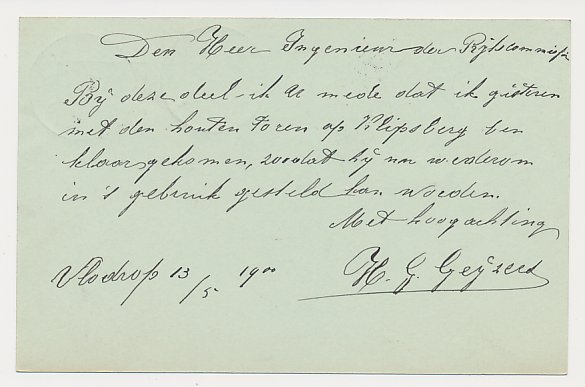 Den Heer Ingenieur der Rijkscommissie
Bij deze deel ik U mede dat ik gisteren
met den houten toren op Klipsberg ben
klaar gekomen, zoodat hij nu wederom
in 's gebruik gesteld kan worden.
Met hoogachting
Vlodrop 13/5 1900 H. G. Geijzers